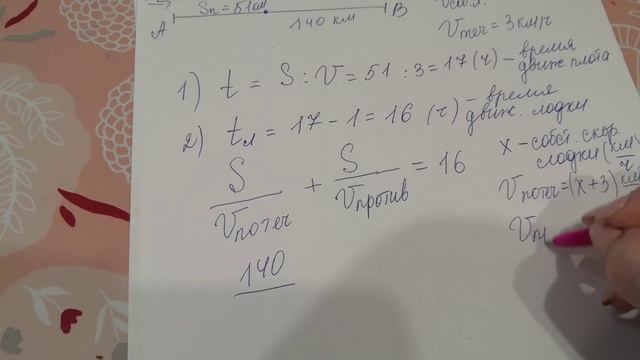 Sп = 51 км
A 140 км B
Vсоб.л.
Vтеч = 3 км/ч
1) t = S : V = 51 : 3 = 17 (ч) – время движ. плота
2) tл = 17 – 1 = 16 (ч) – время движ. лодки
S/Vпо теч + S/Vпротив = 16
140
x – собст. скор. лодки (км/ч)
Vпо теч = (x + 3) км
Vп